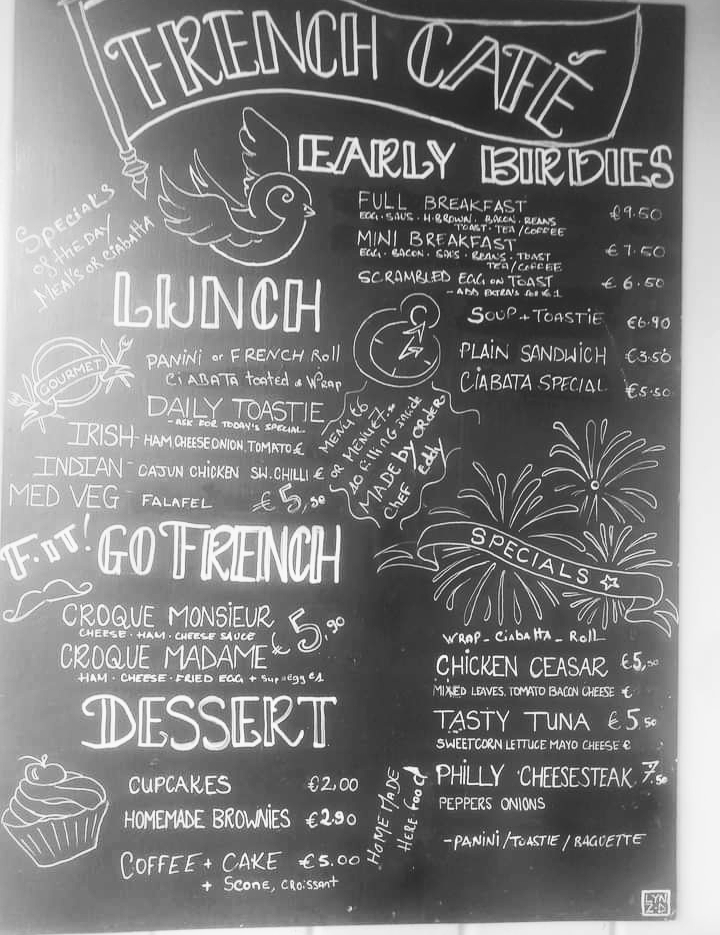 FRENCH CAFÉ
EARLY BIRDIES
FULL BREAKFAST €9.50
EGG · SAUS · H·BROWN · BACON · BEANS
TOAST · TEA/COFFEE
MINI BREAKFAST €7.50
EGG · BACON · SAUS · BEANS · TOAST
TEA/COFFEE
SCRAMBLED EGG ON TOAST €6.50
- ADD EXTRA'S
Specials
of the DAY
MEAL'S OR CIABATTA
LUNCH
SOUP + TOASTIE €6.90
PLAIN SANDWICH €3.50
CIABATA SPECIAL €5.50
GOURMET
PANINI or FRENCH Roll
CIABATA toated & Wrap
DAILY TOASTIE
- ASK FOR TODAY'S SPECIAL
IRISH - HAM, CHEESE ONION, TOMATO €
INDIAN - CAJUN CHICKEN SW. CHILLI €
MED VEG - FALAFEL €5,50
OR
10 filling inside
MADE by ORDER
Chef Eddy
F.IT! GO FRENCH
CROQUE MONSIEUR
CHEESE · HAM · CHEESE SAUCE
€5,90
CROQUE MADAME
HAM · CHEESE · FRIED EGG + Sup egg €1
SPECIALS
WRAP - CiabaHa - Roll
CHICKEN CEASAR €5,50
MIXED LEAVES, TOMATO BACON CHEESE €
TASTY TUNA €5.50
SWEETCORN LETTUCE MAYO CHEESE €
PHILLY CHEESESTEAK 7.50
PEPPERS ONIONS
- PANINI / TOASTIE / BAGUETTE
DESSERT
CUPCAKES €2,00
HOMEMADE BROWNIES €2.90
COFFEE + CAKE €5.00
+ Scone, CROISSANT
HOME MADE
HERE food
LYN
Z·D